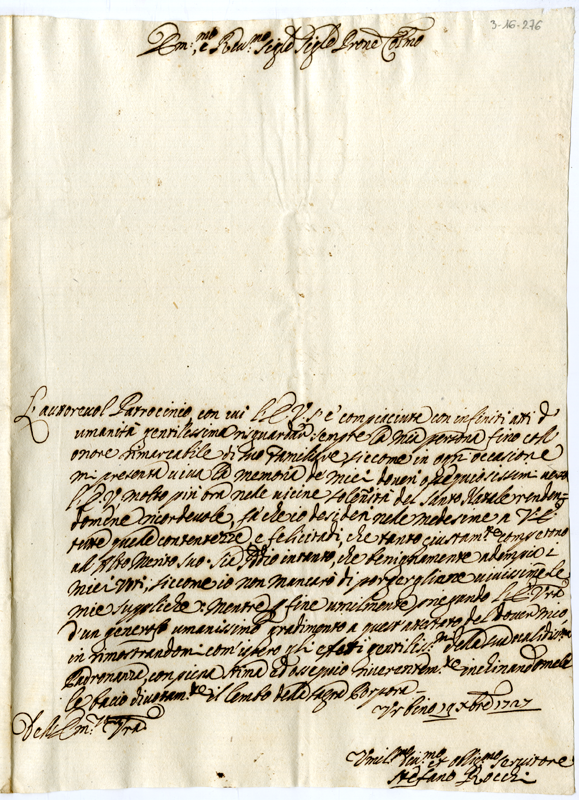 3-16-276
Em:mo, e Reu:mo Sig:re Sig:re Prone Col:mo
L'autoreuol Patrocinio, con cui l'E.V. s'è compiaciuta con infiniti atti d'
umanità gentilissima risguardar sempre la mia persona fino coll'
onore rimarcabile di suo Famigliare, siccome in ogni occasione
mi presenta uiua la memoria de' miei doueri ossequiosissimi uerso
l'E.V. molto più ora nelle uicine solennità del Santo Natale renden-
domene ricordeuole, fà che io desideri nelle medesime a V.E.
tutte quelle contentezze, e felicità, che tanto giustam:te competono
al Alto Merito Suo. Sia Iddio intanto, che benignamente adempia i
miei Voti, siccome io non mancarò di porgergliene uiuissime le
mie suppliche: Mentre per fine umilmente pregando l'E. Vra
d'un generoso umanissimo gradimento a quest'attestato del douer mio,
in rimostrandomi com'spero gli effetti gentiliss:mi della sua ualidissima
Padronanza, con piena stima ed ossequio riuerentem:te inclinandomele
le bacio diuotam:te il lembo della Sagra Porpora.
Vrbino 19 Xbre 1727
Dell'Em:za Vra
Vmil:mo Diu:mo et obblig:mo Seruitore
Stefano Rocci